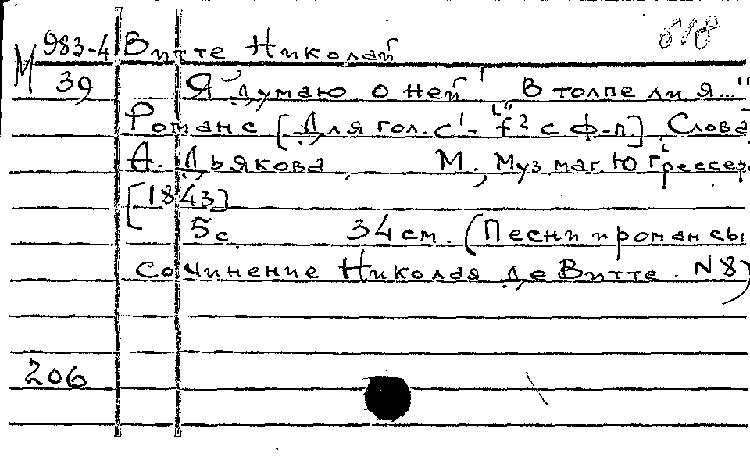 983-4 Витте Николай
М 39 Я думаю о ней „В толпе ли я..."
Романс [Для гол. c¹ - f² с ф-п.] Слова
А. Дьякова, М., Муз маг. Ю Грессер,
[1843]
5 с. 34 см. (Песни и романсы
Сочинение Николая де Витте. N8)
206